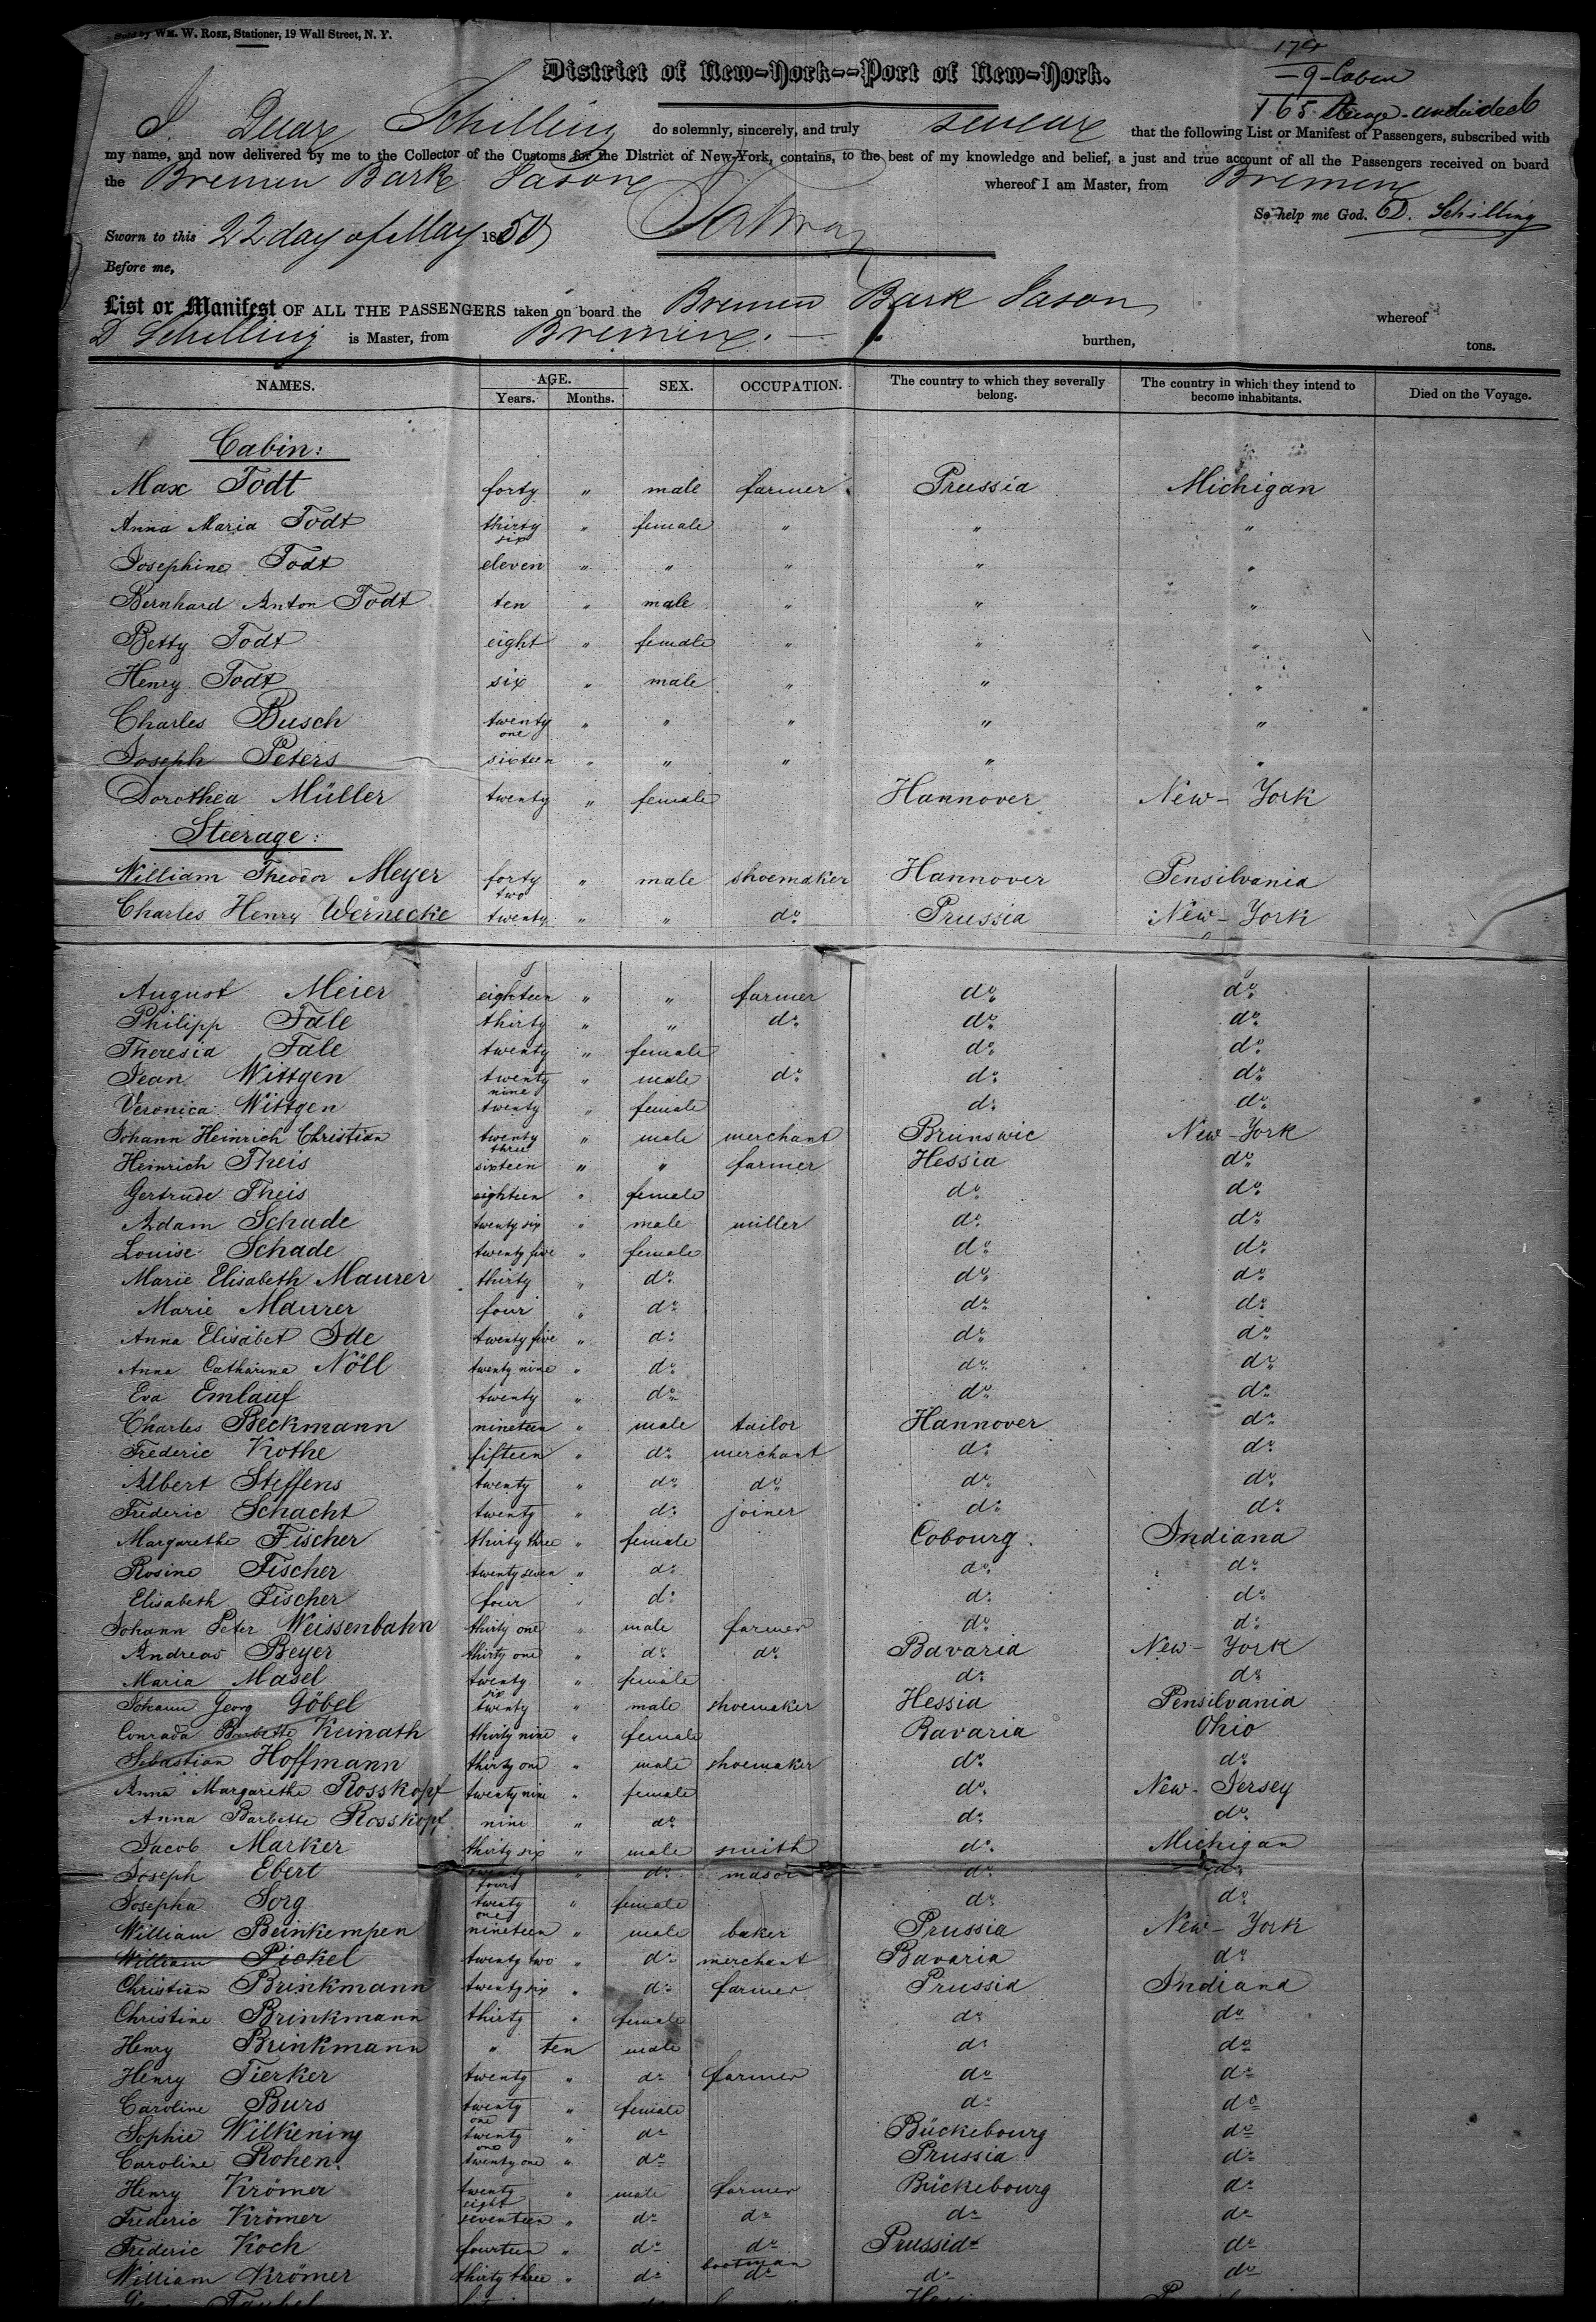 Sold by Wm. W. Rose, Stationer, 19 Wall Street, N. Y.
174
9 Cabin
165 Steerage
District of New-York--Port of New-York.
I. Schilling do solemnly, sincerely, and truly swear that the following List or Manifest of Passengers, subscribed with
my name, and now delivered by me to the Collector of the Customs for the District of New-York, contains, to the best of my knowledge and belief, a just and true account of all the Passengers received on board
the Bremen Bark Jason whereof I am Master, from Bremen
So help me God. D. Schilling
Sworn to this 22 day of May 1850
Before me,
List or Manifest OF ALL THE PASSENGERS taken on board the Bremen Bark Jason whereof
D Schilling is Master, from Bremen. burthen, tons.
NAMES. AGE. Years. Months. SEX. OCCUPATION. The country to which they severally belong. The country in which they intend to become inhabitants. Died on the Voyage.
Cabin:
Max Todt forty " male farmer Prussia Michigan
Anna Maria Todt thirty six " female " " "
Josephine Todt eleven " " " " "
Bernhard Anton Todt ten " male " " "
Betty Todt eight " female " " "
Henry Todt six " male " " "
Charles Busch twenty one " " " " "
Joseph Peters sixteen " " " " "
Dorothea Müller twenty " female Hannover New-York
Steerage:
William Theodor Meyer forty two " male shoemaker Hannover Pensilvania
Charles Henry Wernecke twenty " " do Prussia New-York
August Meier eighteen " " farmer do do
Philipp Fale thirty " " do do do
Theresia Fale twenty " female do do
Jean Wittgen twenty nine " male do do do
Veronica Wittgen twenty " female do do
Johann Heinrich Christian twenty three " male merchant Brunswic New-York
Heinrich Theis sixteen " " farmer Hessia do
Gertrude Theis eighteen " female do do
Adam Schade twenty six " male miller do do
Louise Schade twenty five " female do do
Marie Elisabeth Maurer thirty " do do do
Marie Maurer four " do do do
Anna Elisabet Ide twenty five " do do do
Anna Catharina Nöll twenty nine " do do do
Eva Emlauf twenty " do do do
Charles Beckmann nineteen " male tailor Hannover do
Frederic Kothe fifteen " do merchant do do
Albert Steffens twenty " do do do do
Frederic Schacht twenty " do joiner do do
Margarethe Fischer thirty three " female Cobourg. Indiana
Rosine Fischer twenty seven " do do do
Elisabeth Fischer four " do do do
Johann Peter Weissenbahn thirty one " male farmer do do
Andreas Beyer thirty one " do do Bavaria New-York
Maria Masel twenty six " female do do
Johann Georg Göbel twenty " male shoemaker Hessia Pensilvania
Conrada Barbette Keinath thirty nine " female Bavaria Ohio
Sebastian Hoffmann thirty one " male shoemaker do do
Anna Margarethe Rosskopf twenty nine " female do New-Jersey
Anna Barbette Rosskopf nine " do do do
Jacob Marker thirty six " male smith do Michigan
Joseph Ebert twenty four " do mason do do
Josepha Sorg twenty one " female do do
William Beinkempen nineteen " male baker Prussia New-York
William Pickel twenty two " do merchant Bavaria do
Christian Brinkmann twenty six " do farmer Prussia Indiana
Christine Brinkmann thirty " female do do
Henry Brinkmann " ten male do do
Henry Tierker twenty " do farmer do do
Caroline Burs twenty one " female do do
Sophie Wilkening twenty one " do Bückebourg do
Caroline Rohen. twenty one " do Prussia do
Henry Krömer twenty eight " male farmer Bückebourg do
Frederic Krömer seventeen " do do do do
Frederic Koch fourteen " do do Prussia do
William Krömer thirty three " do bootman do do do